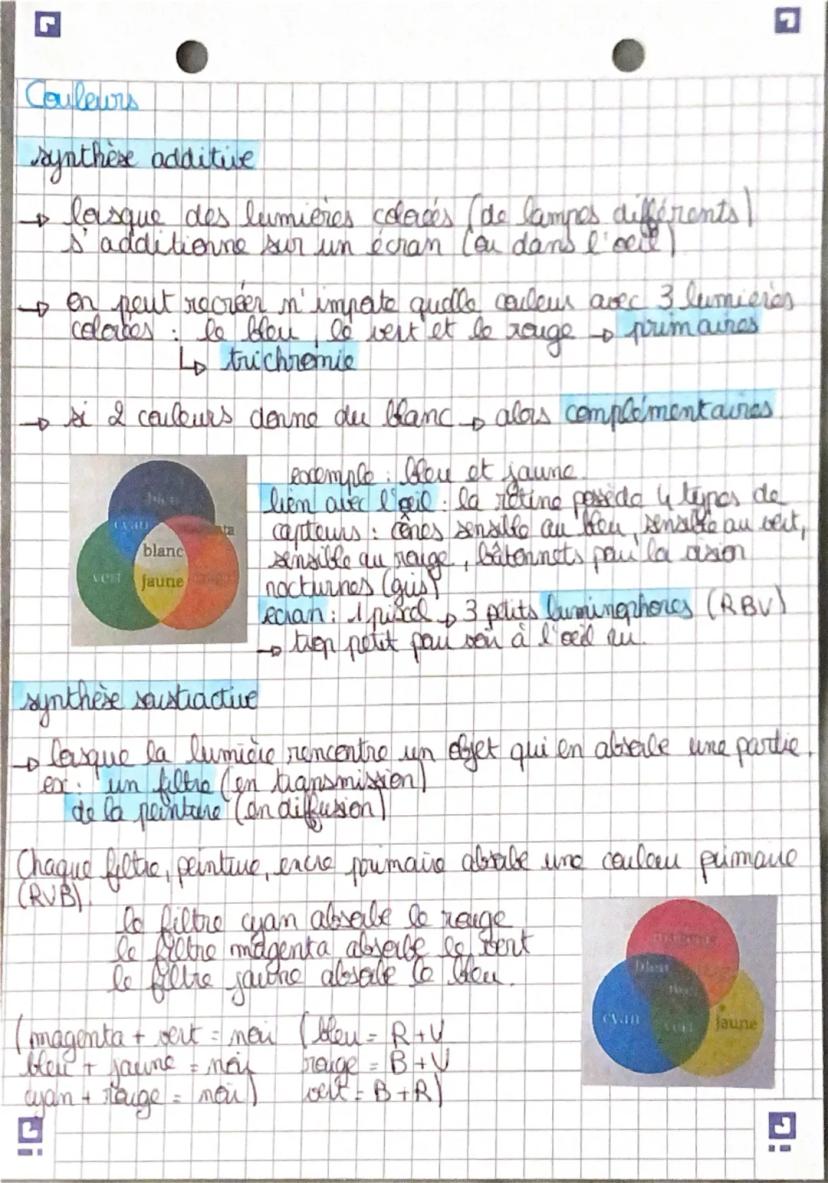 Couleurs
synthèse additive
→ lorsque des lumières colorés (de lampes différents)
s'additionne sur un écran (ou dans l'oeil)
→ on peut recréer n'importe quelle couleur avec 3 lumières
colorées : le bleu, le vert et le rouge → primaires
↳ trichromie
→ si 2 couleurs donne du blanc → alors complémentaires
exemple : bleu et jaune
lien avec l'œil : la rétine possède 4 types de
capteurs : cônes sensible au bleu, sensible au vert,
sensible au rouge, bâtonnets pour la vision
nocturnes (gris)
écran : 1 pixel → 3 petits luminophores (RBV)
→ trop petit pour voir à l'oeil nu.
bleu
cyan
blanc
vert
jaune
rouge
synthèse soustractive
→ lorsque la lumière rencontre un objet qui en absorbe une partie.
ex : un filtre (en transmission)
de la peinture (en diffusion)
Chaque filtre, peinture, encre primaire absorbe une couleur primaire
(RVB).
le filtre cyan absorbe le rouge
le filtre magenta absorbe le vert
le filtre jaune absorbe le bleu.
magenta
bleu
rouge
noir
cyan
vert
jaune
(magenta + vert = noir (bleu = R+V
bleu + jaune = noir rouge = B+V
cyan + rouge = noir) vert = B+R)